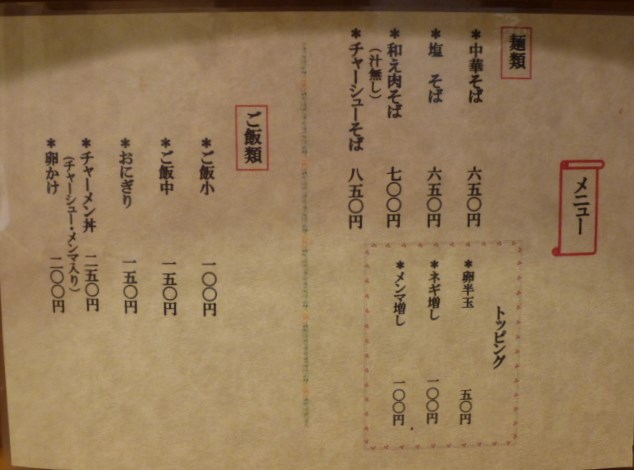 メニュー
麺類
＊中華そば 六五〇円
＊塩 そば 六五〇円
＊和え肉そば 七〇〇円
（汁無し）
＊チャーシューそば 八五〇円
トッピング
＊卵半玉 五〇円
＊ネギ増し 一〇〇円
＊メンマ増し 一〇〇円
ご飯類
＊ご飯小 一〇〇円
＊ご飯中 一五〇円
＊おにぎり 一五〇円
＊チャーメン丼 二五〇円
（チャーシュー・メンマ入り）
＊卵かけ 二〇〇円